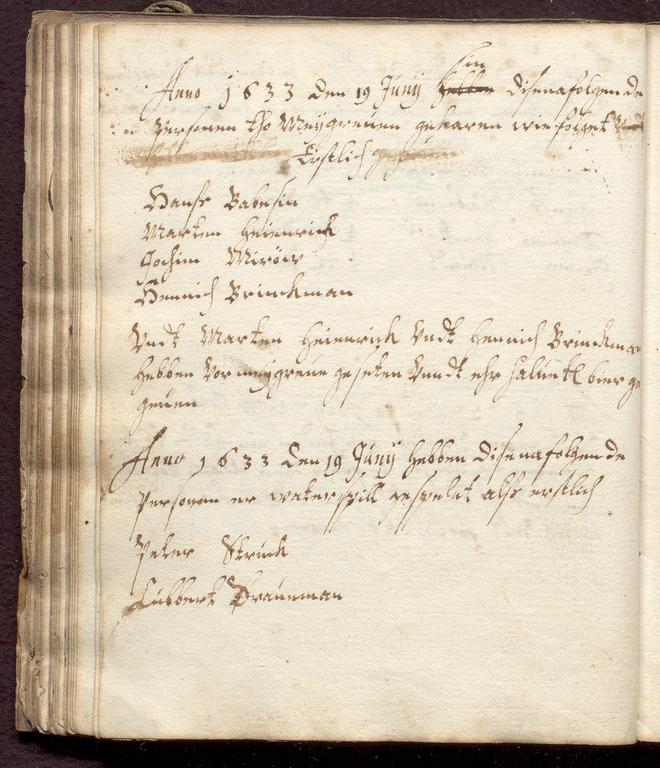 sin
Anno 1633 den 19 Juny hebben disenafolgende
Personen tho Meygreuen gekaren wie folget
Erstlich
Hanss
Marten Heinrick
Jochim
Hennich Brinckman
Vndt Marten Heinrick Vndt Hennich Brinckman
hebben Vor meygreue geseten Vnndt ehr bier ge
geuen
Anno 1633 den 19 Juny hebben disenafolgende
Personen er waterspill gespelet alss erstlich
Peter Struck
Lubbert Braueman